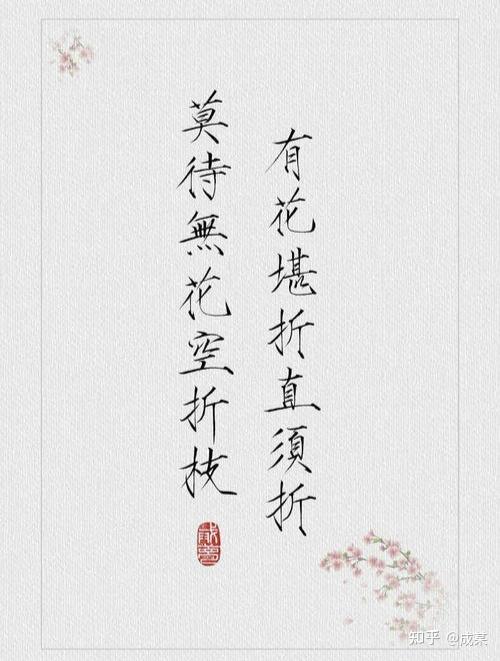 有花堪折直須折
莫待無花空折枝
知乎 @成